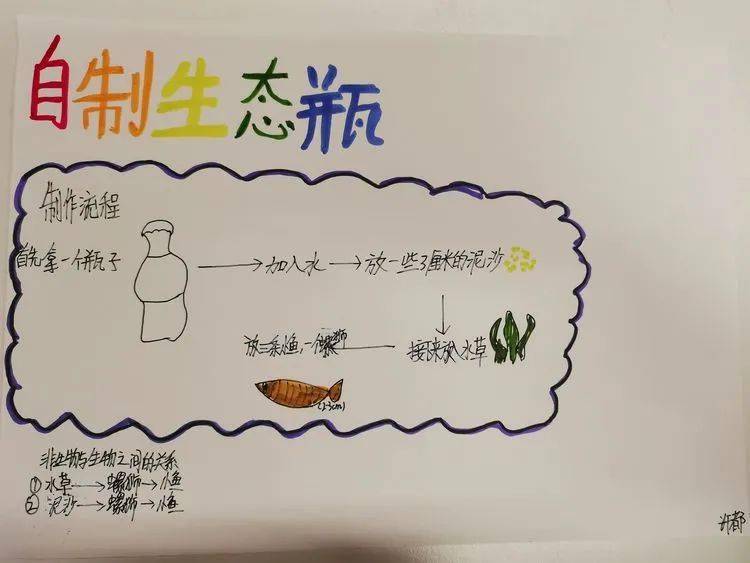 自制生态瓶
制作流程
首先拿一个瓶子
加入水
放一些3厘米的泥沙
接下来放入水草
放三条小鱼，一个螺蛳
(2-3cm)
非生物与生物之间的关系
①水草→螺蛳→小鱼
②泥沙→螺蛳→小鱼